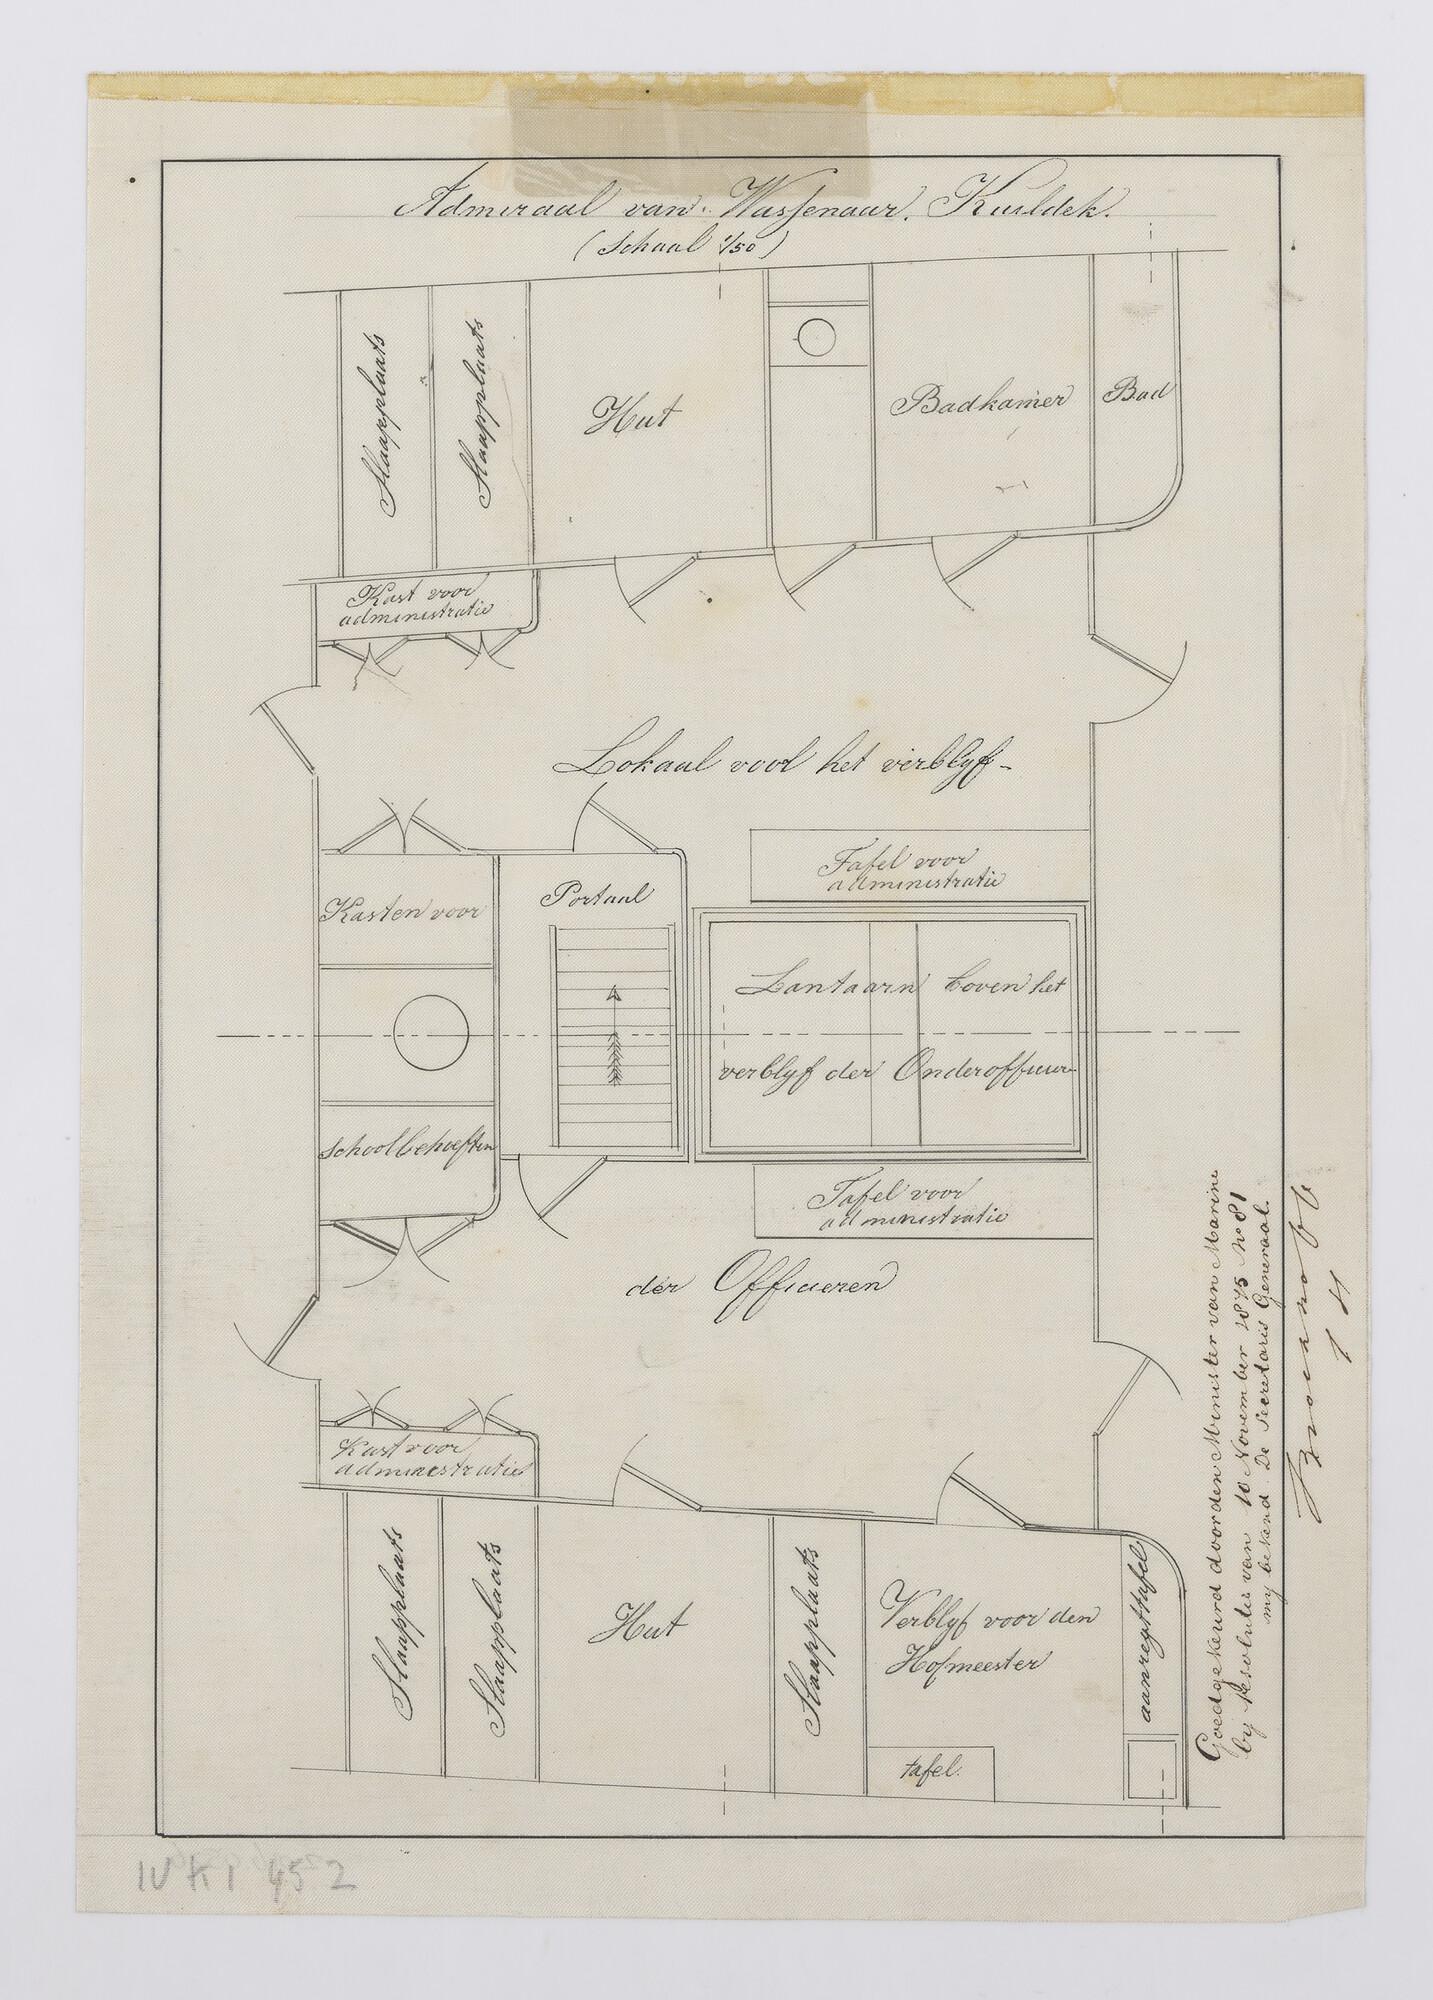 Admiraal van Wassenaar. Kuildek.
(Schaal 1/50)
Slaapplaats
Slaapplaats
Hut
Badkamer
Bad
Kast voor
administratie
Lokaal voor het verblyf-
Tafel voor
administratie
Kasten voor
Portaal
Lantaarn boven het
verblyf der Onderofficier
schoolbehoeften
Tafel voor
administratie
der Officieren
Kast voor
administratie
Slaapplaats
Slaapplaats
Hut
Slaapplaats
Verblyf voor den
Hofmeester
aanregttafel
tafel.
Goedgekeurd door den Minister van Marine
by resolutie van 10 November 1875 No 81
my bekend De Secretaris Generaal.
IV K 1 45 2